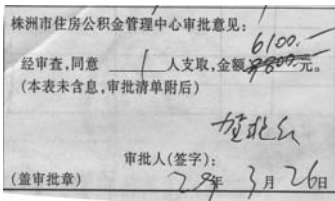 株洲市住房公积金管理中心审批意见:
6100.—
经审查,同意 1 人支取,金额 元。
(本表未含息,审批清单附后)
审批人(签字):
(盖审批章) 年 3 月 26 日